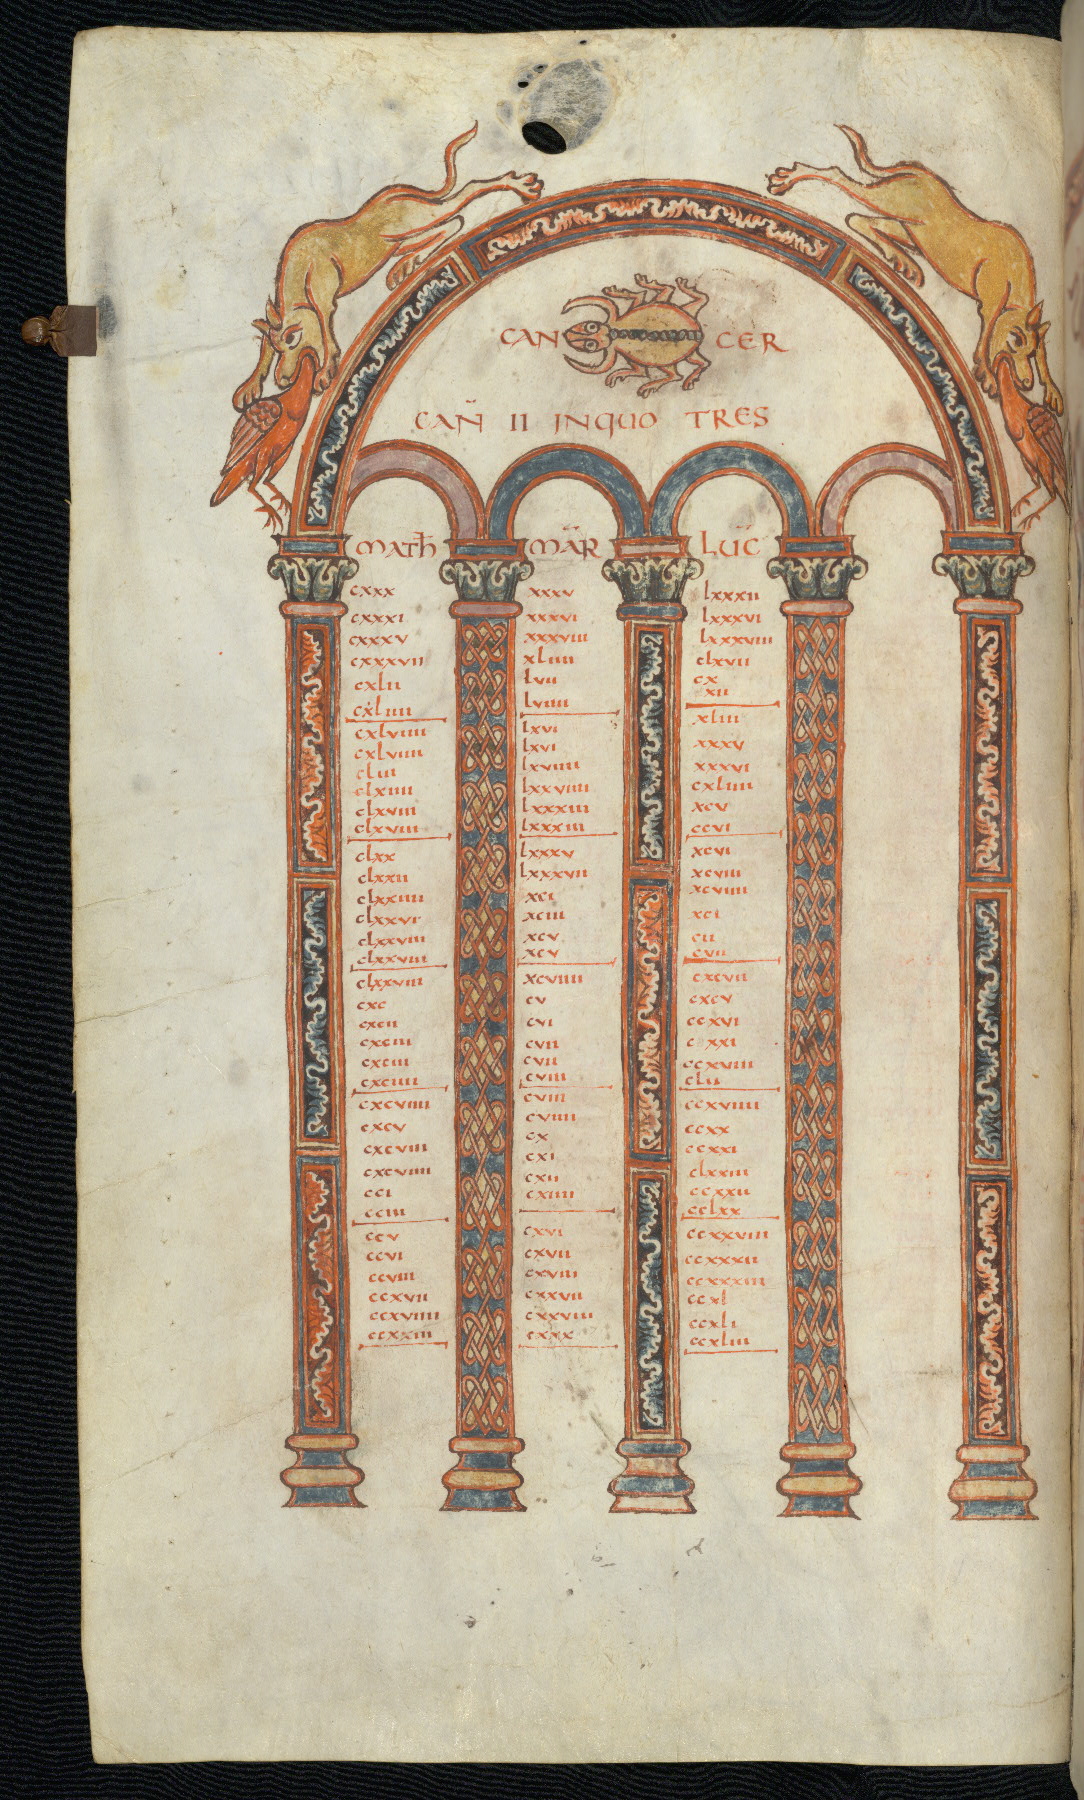 CAN CER
CAÑ II INQUO TRES
MATH MAR LUC
cxxx xxxv lxxxii
cxxxi xxxvi lxxxvi
cxxxv xxxviii lxxxviii
cxxxvii xliiii clxvii
cxlii lvii cx
cxliiii lviiii xii
cxlviiii lxvi xliii
cxlviiii lxvi xxxv
cliii lxviiii xxxvi
clxiiii lxxviiii cxliiii
clxviii lxxxiii xcv
clxviii lxxxiii ccvi
clxx lxxxv xcvi
clxxii lxxxvii xcviii
clxxiiii xci xcviiii
clxxvi xciii xci
clxxviii xcv cii
clxxviii xcv cvii
clxxviii xcviiii cxcvii
cxc cv cxcv
cxcii cvi ccxvi
cxciii cvii c xxi
cxciii cvii ccxviii
cxciiii cviii clii
cxcviiii cviii ccxviiii
cxcv cviiii ccxx
cxcviii cx ccxxi
cxcviiii cxi clxxiii
cci cxii ccxxii
cciii cxiiii cclxx
ccv cxvi ccxxviii
ccvi cxvii ccxxxii
ccviii cxviii ccxxxiii
ccxvii cxxvii ccxl
ccxviiii cxxviii ccxli
ccxxiii cxxx ccxliii